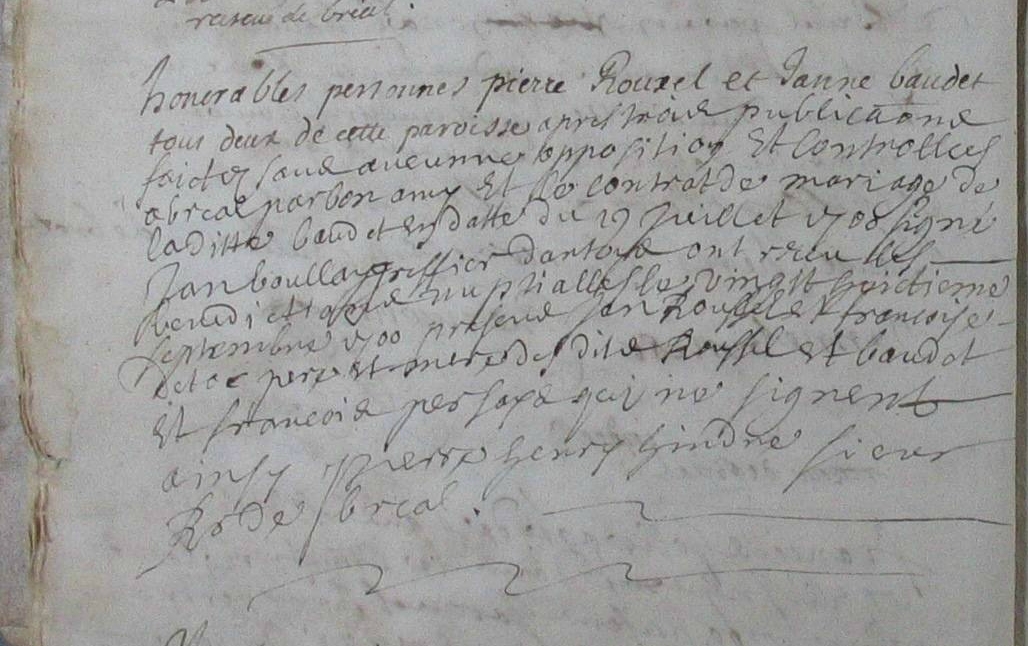 de breal.
honorables personnes pierre Rouxel et Janne baudet
tous deux de cette paroisse apres trois publications
faictes sans aucunne opposition Et Controllees
a breal par bon amy Et le contrat de mariage de
laditte baudet en datte du 19 Juillet 1708 signé
Jan boullay greffier ont receu les
benedictions nuptialles le vingt huictieme
septembre 1700 presens Jan Rouxel et francoise
pere et mere desdits Rouxel et baudet
Et francois persaxe qui ne signent
ainsy pierre henry hindre sieur
Rr de breal.